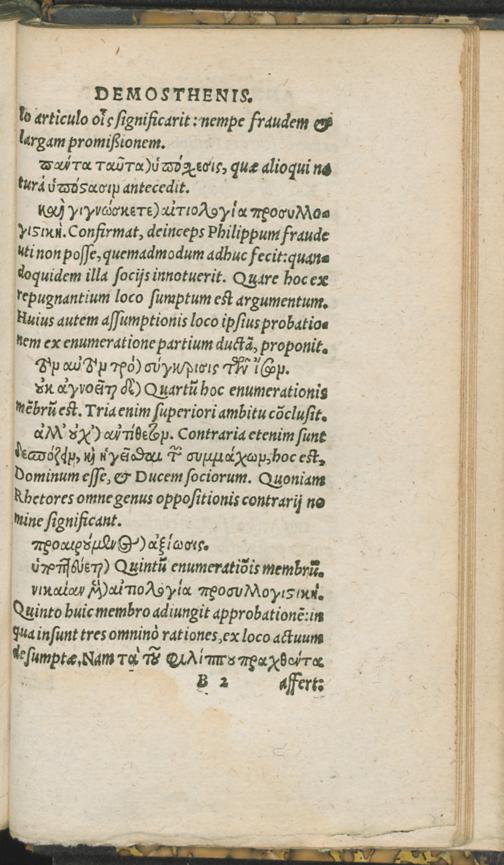 DEMOSTHENIS.
articulo οἷς significarit: nempe fraudem &
largam promißionem.
πάντα ταῦτα) ὑπόθεσις, quæ alioqui na
turâ antecedit.
καὶ γιγνώσκετε) αἰτιολογία προσυλλο
γιστική. Confirmat, deinceps Philippum fraude
uti non posse, quemadmodum adhuc fecit: quan
doquidem illa socijs innotuerit. Quare hoc ex
repugnantium loco sumptum est argumentum.
Huius autem assumptionis loco ipsius probatio
nem ex enumeratione partium ductã, proponit.
τὸν αὐτὸν τρό) σύγκρισις τῶν ἴσων.
οὐκ ἀγνοεῖτε δὲ) Quartũ hoc enumerationis
mẽbrũ est. Tria enim superiori ambitu cõclusit.
ἀλλ' οὐχ) ἀντίθετον. Contraria etenim sunt
δεσπόζειν, καὶ ἡγεῖσθαι τῶν συμμάχων, hoc est,
Dominum esse, & Ducem sociorum. Quoniam
Rhetores omne genus oppositionis contrarij no
mine significant.
προαιρούμενος) ἀξίωσις.
Quintũ enumeratiõis membrũ.
αἰτιολογία προσυλλογιστική.
Quinto huic membro adiungit approbationẽ: in
qua insunt tres omninò rationes, ex loco actuum
desumptæ. Nam τὰ τοῦ Φιλίππου πραχθέντα
B 2 affert: